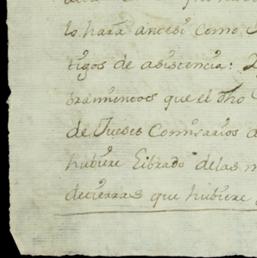 lo hará ancesi como
tigos de asistencia:
bramientos que el Dho
de Jueses Comisarios
hubiere Librado delas
decierras que hubiere